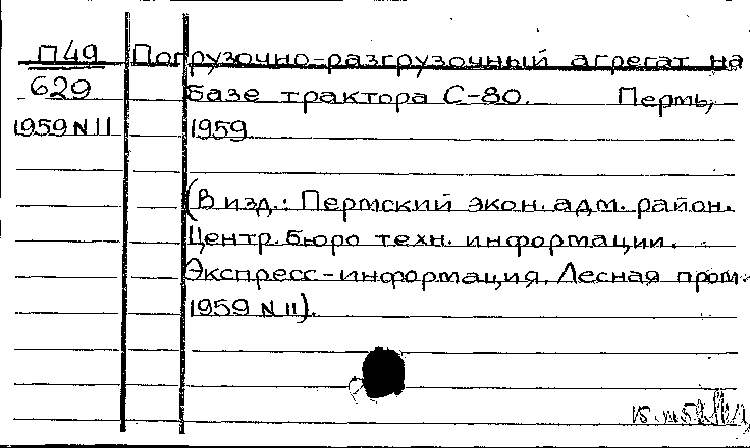 П49 Погрузочно-разгрузочный агрегат на
629 базе трактора С-80. Пермь,
1959 N 11 1959
(В изд.: Пермский экон. адм. район.
Центр. бюро техн. информации.
Экспресс-информация. Лесная пром.
1959 N 11).